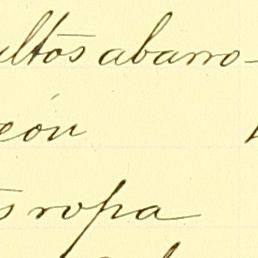 ultos abarro-
eón
s ropa